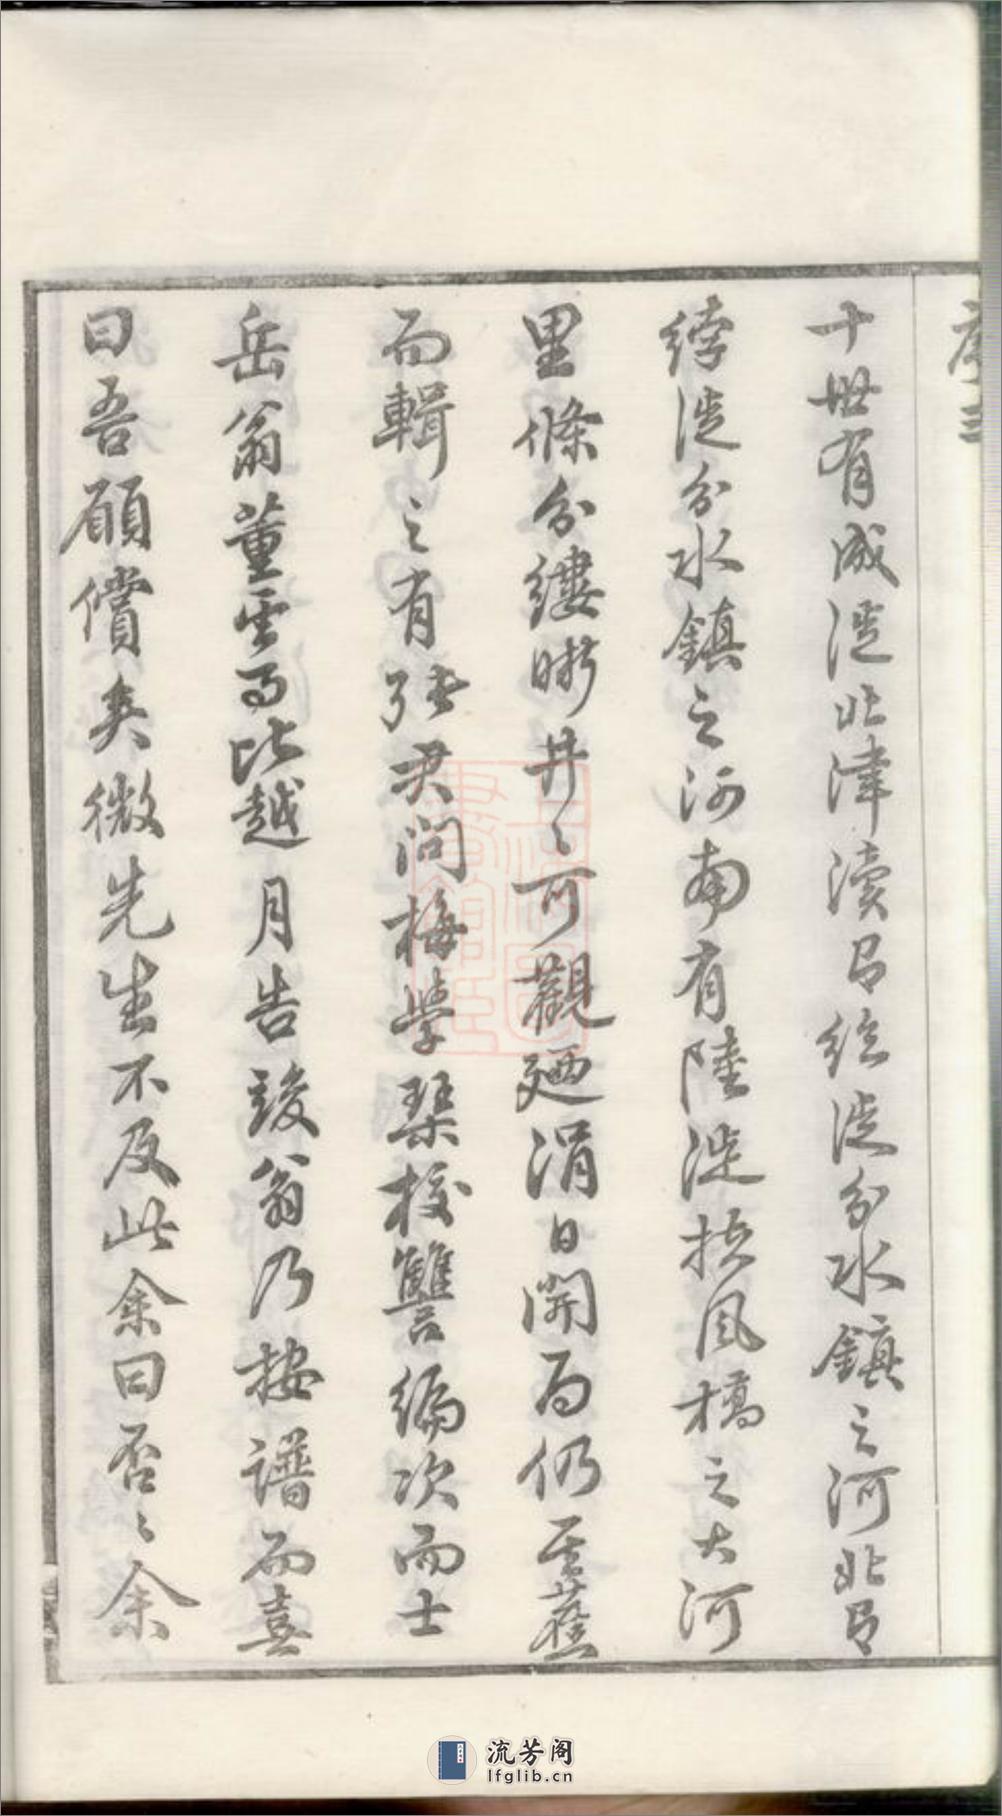 序三
十世有成遷北津瀆曰紀徙分水鎮之河北曰
繹徙分水鎮之河南有陸遷扶風橋之大河
里條分縷晰井〻可觀廼涓日開局仍其舊
而輯之有張君問梅學琹校讐編次而士
岳翁董其事比越月告竣翁乃按譜而喜
曰吾願償矣微先生不及此余曰否〻余
流芳阁
lfglib.cn